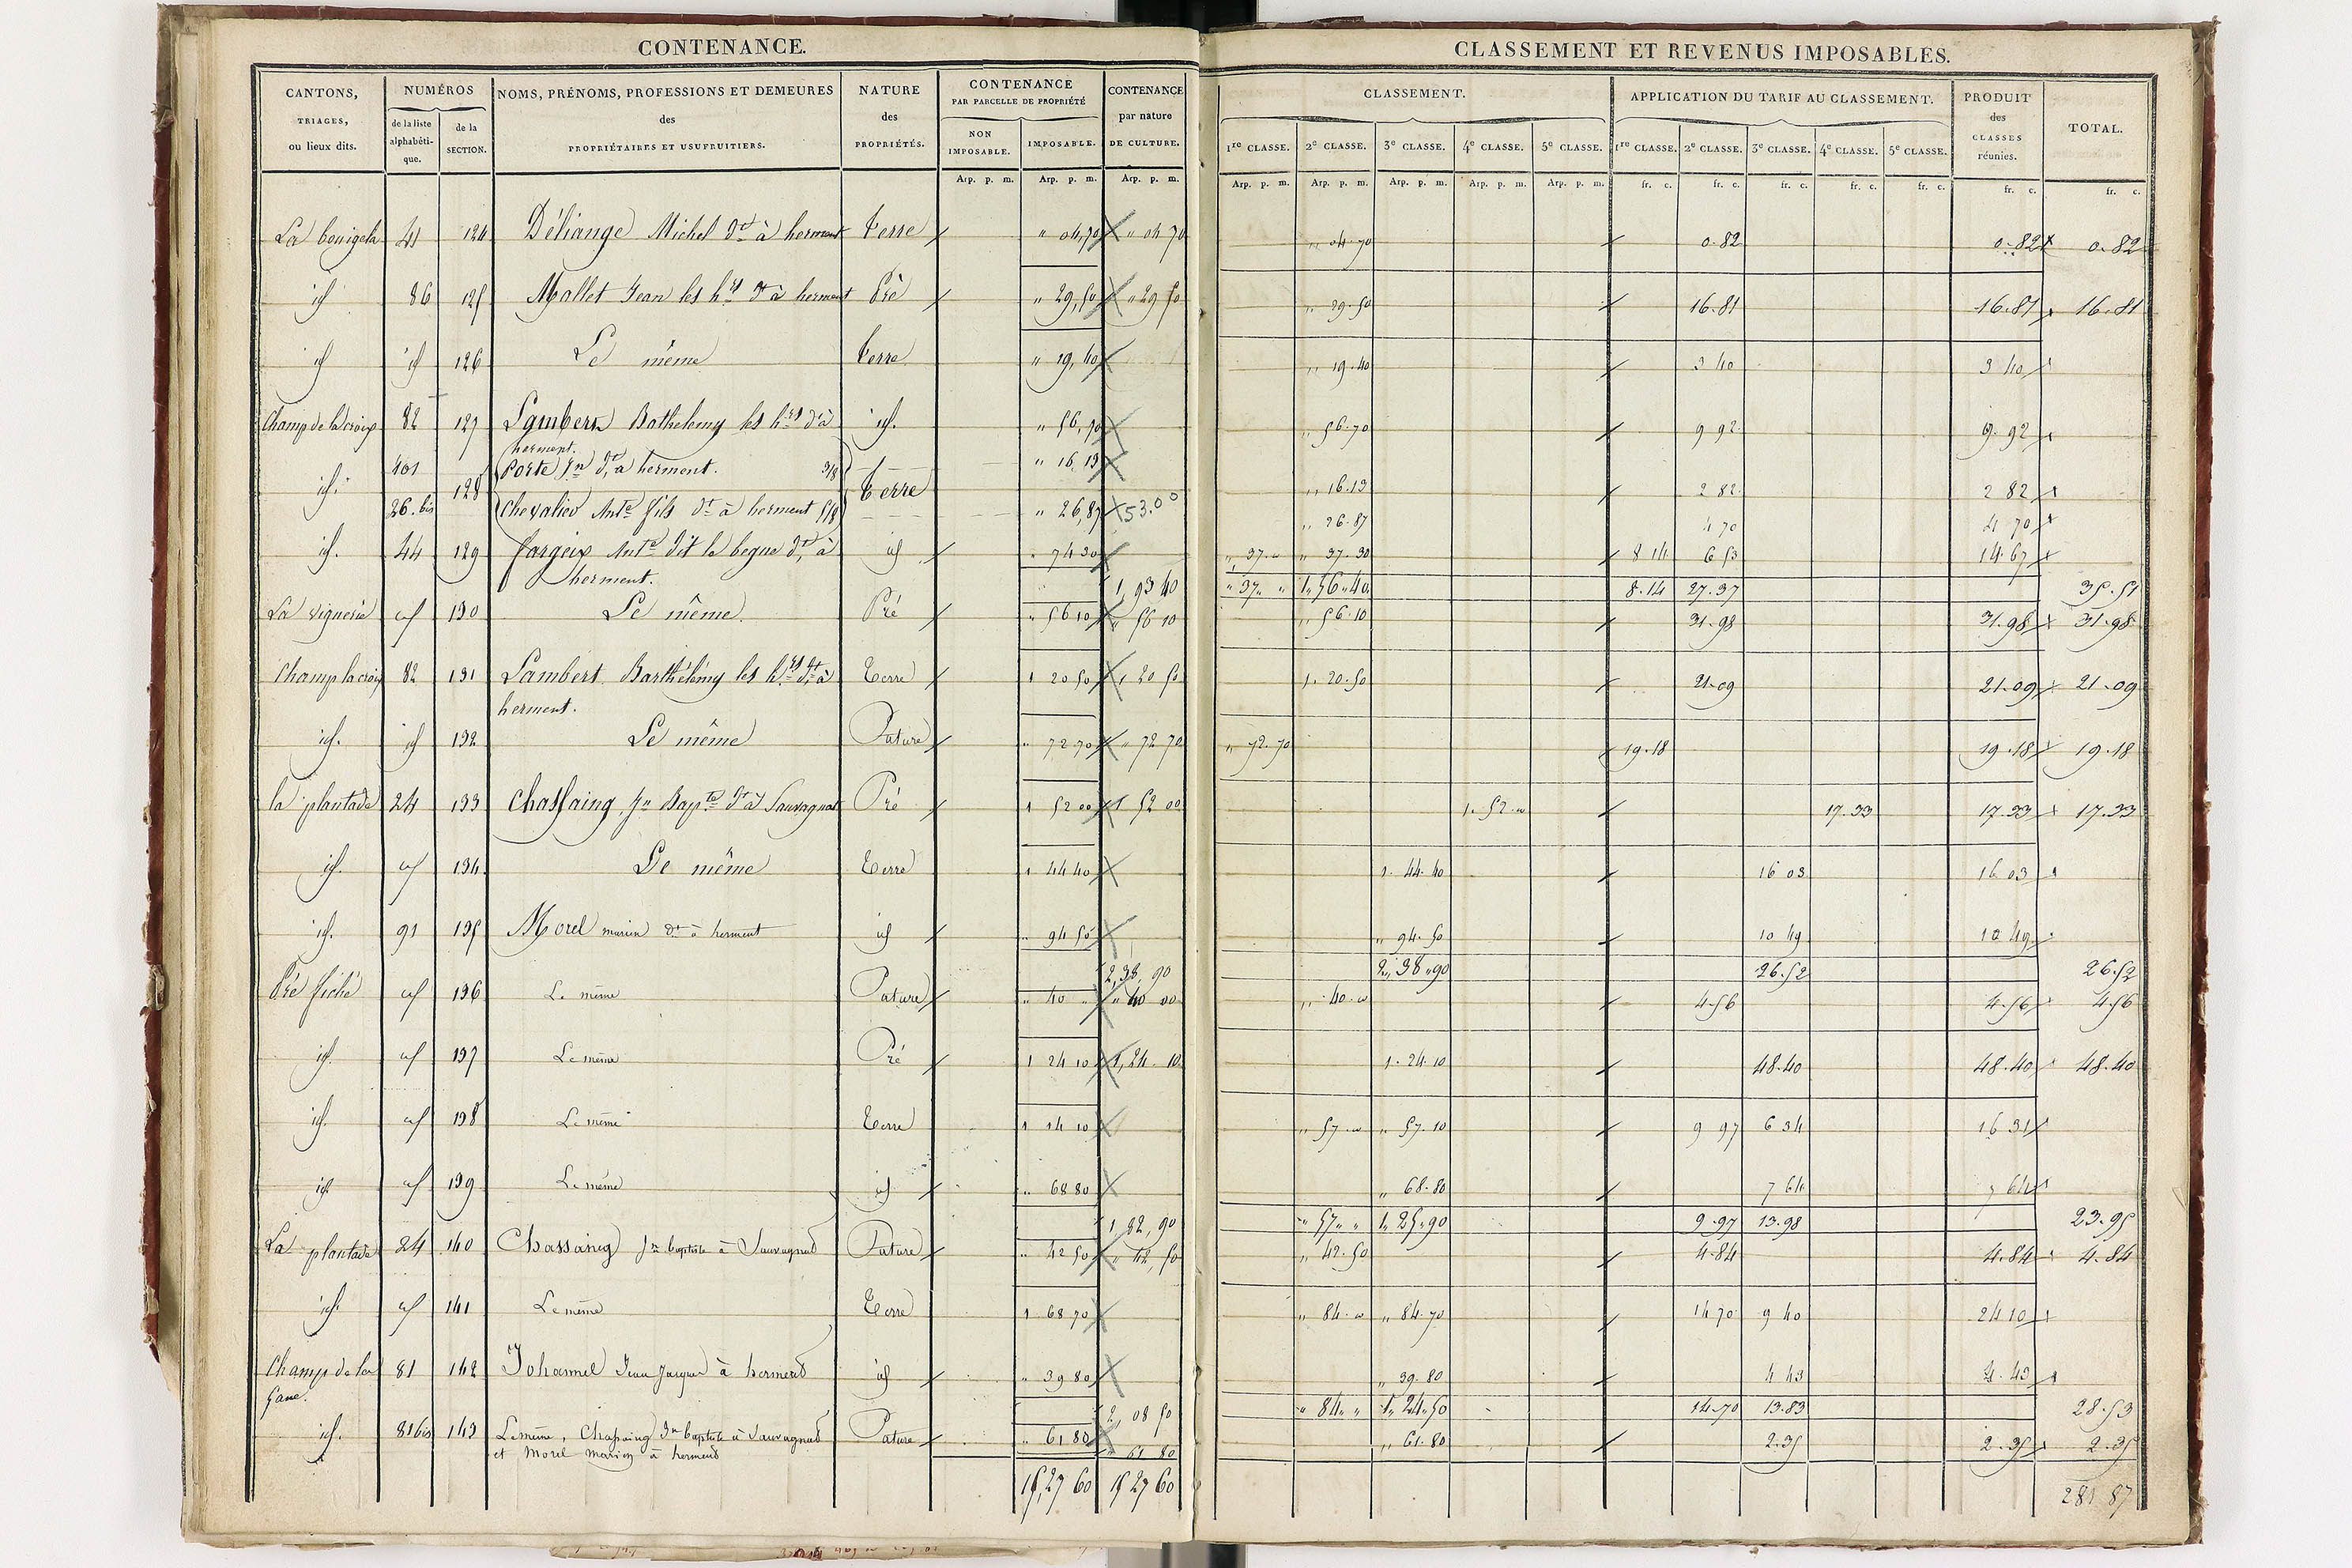 CONTENANCE.
CANTONS, TRIAGES, ou lieux dits.
NUMÉROS
de la liste alphabéti- que.
de la SECTION.
NOMS, PRÉNOMS, PROFESSIONS ET DEMEURES
des
PROPRIÉTAIRES ET USUFRUITIERS.
NATURE
des
PROPRIÉTÉS.
CONTENANCE
PAR PARCELLE DE PROPRIÉTÉ
NON IMPOSABLE.
IMPOSABLE.
CONTENANCE
par nature
DE CULTURE.
Arp. p. m. Arp. p. m. Arp. p. m.
41 124 Michel dt à herment terre " 04,70 " 04 70
id 86 125 Mallet Jean les hrs dt à herment Pré " 29,50 " 29 50
id id 126 Le même terre " 19,40
Champ de la croix 82 127 Lambert Bathélemy les hrs dt à id. " 56,70
herment.
101 Porte Jn dt à herment. 3/8 " 16,13
id. 128 terre
26.bis Chevalier Ante fils dt à herment 5/8 " 26,87 53.00
id. 44 129 Fargeix Ante dit le begue dt à id " 74 30
herment. 1,93 40
La vignerie id 130 Le même. Pré " 56 10 " 56 10
Champ la croix 82 131 Lambert Barthélémy les hrs dt à Terre 1 20 50 1, 20 50
herment.
id. id 132 Le même Pature " 72 70 " 72 70
la plantade 24 133 Chassaing Jn Bapte dt à Sauvagnat Pré 1 52 00 1 52 00
id. id 134 Le même Terre 1 44 40
id. 91 135 Morel marien dt à herment id " 94 50
2,38,90
Pré fiché id 136 Le même Pature " 40 " " 40 00
id. id 137 Le même Pré 1 24 10 1,24 10
id. id 138 Le même Terre 1 14 10
id id 139 Le même id " 68 80
1,82,90
La plantade 24 140 Chassaing Jn baptiste à Sauvagnat Pature " 42 50 " 42,50
id. id 141 Le même Terre 1 68 70
Champ de la 81 142 Johannel Jean Jacques à herment id " 39 80
Gane. 2, 08 50
id. 81 bis 143 Le même, Chassaing Jn baptiste à Sauvagnat Pature " 61 80
et Morel marien à herment " 61 80
15,27 60 15 27 60
CLASSEMENT ET REVENUS IMPOSABLES.
CLASSEMENT.
1re CLASSE. 2e CLASSE. 3e CLASSE. 4e CLASSE. 5e CLASSE.
APPLICATION DU TARIF AU CLASSEMENT.
1re CLASSE. 2e CLASSE. 3e CLASSE. 4e CLASSE. 5e CLASSE.
PRODUIT
des
CLASSES
réunies.
TOTAL.
Arp. p. m. Arp. p. m. Arp. p. m. Arp. p. m. Arp. p. m. fr. c. fr. c. fr. c. fr. c. fr. c. fr. c. fr. c.
" 04.70 0.82 0.82 0.82
" 29.50 16.81 16.81 16.81
" 19.40 3 40 3 40
" 56.70 9 92 9.92
" 16.13 2 82 2 82
" 26.87 4 70 4 70
" 37." " 37.30 8 14 6 53 14.67
" 37." " 1"56"40 8.14 27.37 35.51
" 56.10 31.98 31.98 31.98
1. 20.50 21.09 21.09 21.09
" 72.70 19.18 19.18 19.18
1. 52." 17.33 17.33 17.33
1. 44.40 16 03 16 03
" 94.50 10 49 10 49
2"38"90 26.52 26.52
" 40." 4.56 4.56 4.56
1. 24.10 48.40 48.40 48.40
" 57." " 57.10 9 97 6 34 16 31
" 68.80 7 64 7 64
" 57" " 1"25"90 9.97 13.98 23.95
" 42.50 4.84 4.84 4.84
" 84." " 84.70 14 70 9 40 24 10
" 39.80 4 43 4.43
" 84" " 1"24"50 14.70 13.83 28.53
" 61.80 2.35 2.35 2.35
281 87